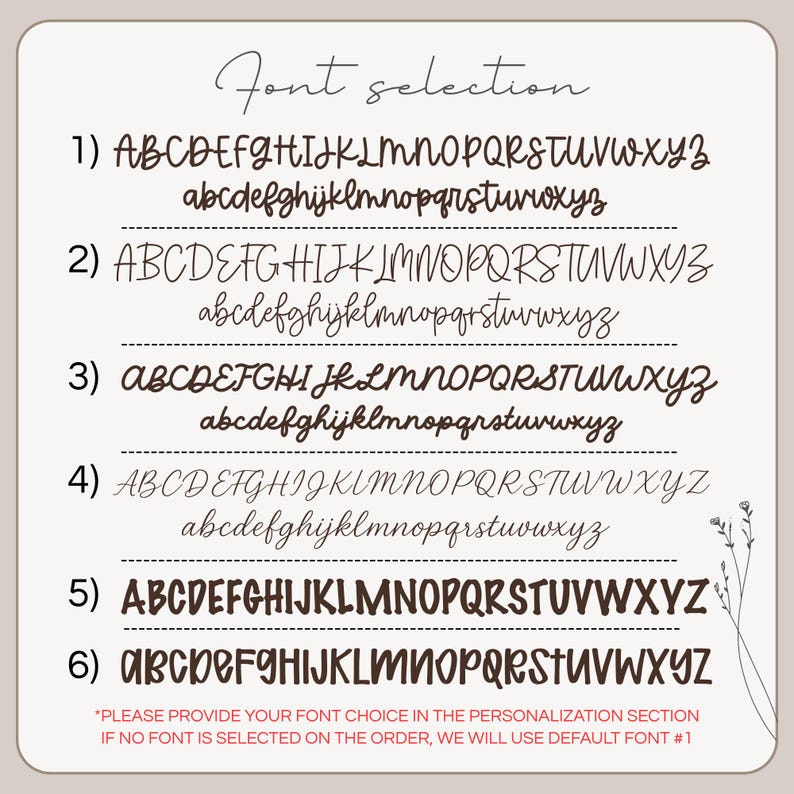 Font selection
1) ABCDEFGHIJKLMNOPQRSTUVWXYZ
abcdefghijklmnopqrstuvwxyz
2) ABCDEFGHIJKLMNOPQRSTUVWXYZ
abcdefghijklmnopqrstuvwxyz
3) ABCDEFGHIJKLMNOPQRSTUVWXYZ
abcdefghijklmnopqrstuvwxyz
4) ABCDEFGHIJKLMNOPQRSTUVWXYZ
abcdefghijklmnopqrstuvwxyz
5) ABCDEFGHIJKLMNOPQRSTUVWXYZ
6) aBCDeFgHIJKLMNOPQRSTUVWXYZ
*PLEASE PROVIDE YOUR FONT CHOICE IN THE PERSONALIZATION SECTION
IF NO FONT IS SELECTED ON THE ORDER, WE WILL USE DEFAULT FONT #1